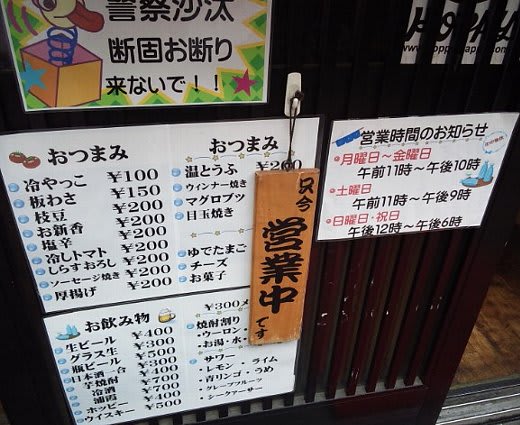 警察沙汰
断固お断り
来ないで!!
おつまみ
冷やっこ ¥100
板わさ ¥150
枝豆 ¥200
お新香 ¥200
塩辛 ¥200
冷しトマト ¥200
しらすおろし ¥200
ソーセージ焼き ¥200
厚揚げ ¥200
おつまみ
温とうふ ¥200
ウィンナー焼き
マグロブツ
目玉焼き
ゆでたまご
チーズ
お菓子
お飲み物
生ビール ¥400
グラス生 ¥300
瓶ビール ¥500
日本酒一合 ¥400
芋焼酎
冷酒 ¥700
浦霞
ホッピー ¥400
ウイスキー ¥500
¥300
焼酎割り
・ウーロン・
・お湯・水
サワー
・レモン・ライム
・青リンゴ・うめ
・グレープフルーツ
・シークアーサー
只今
営業中
です
営業時間のお知らせ
月曜日〜金曜日
午前11時〜午後10時
土曜日
午前11時〜午後9時
日曜日・祝日
午後12時〜午後6時